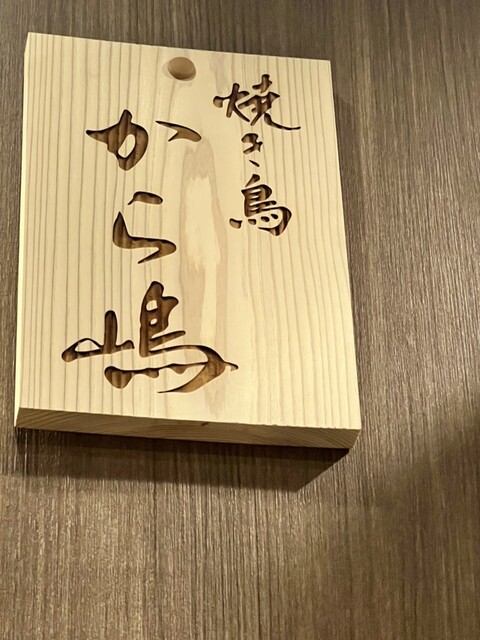 焼き鳥
から嶋